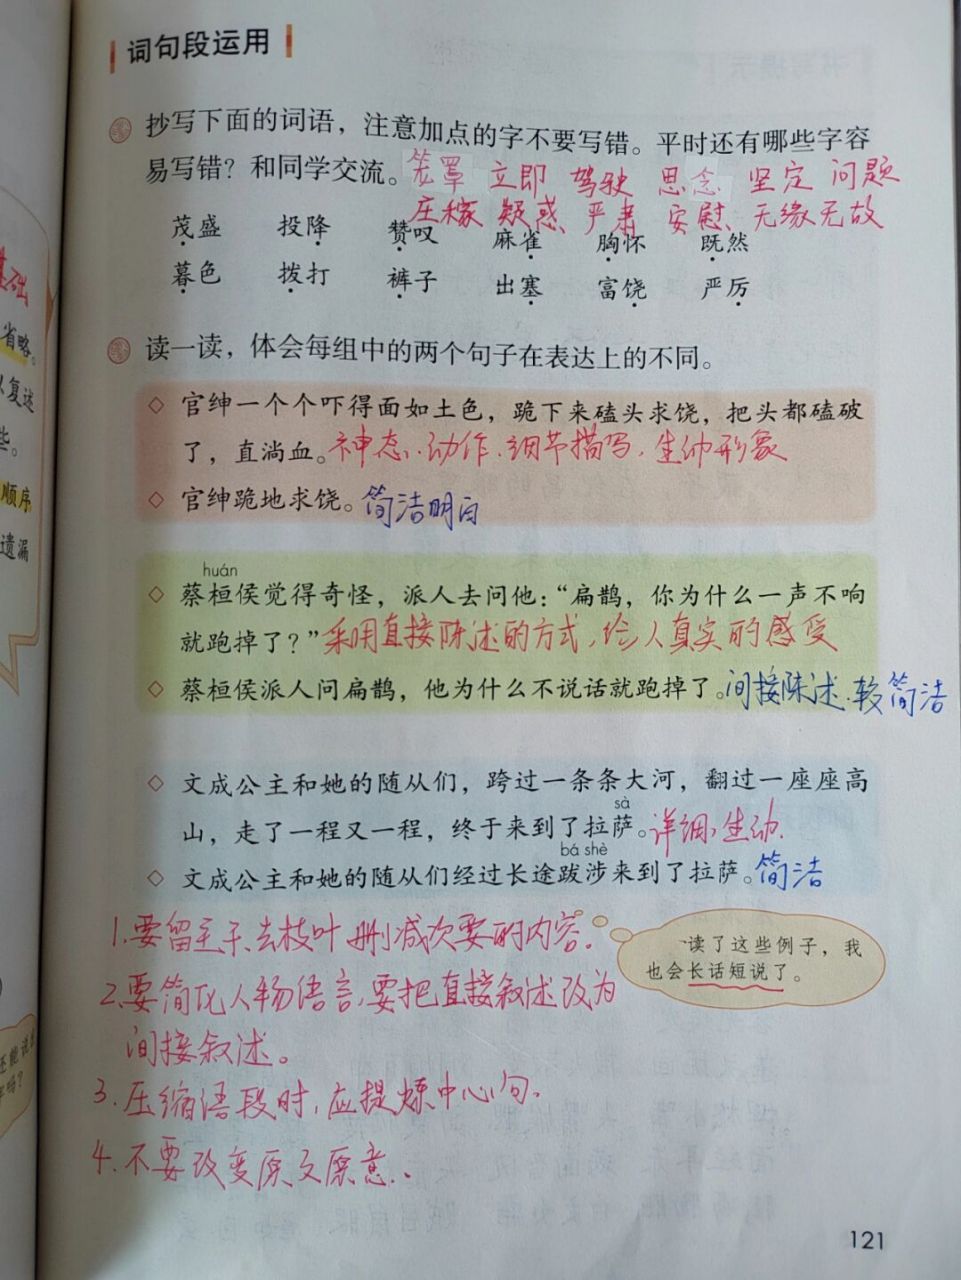 词句段运用
抄写下面的词语，注意加点的字不要写错。平时还有哪些字容
易写错？和同学交流。
笼罩 立即 驾驶 思念 坚定 问题
庄稼 疑惑 严肃 安慰 无缘无故
茂盛 投降 赞叹 麻雀 胸怀 既然
暮色 拨打 裤子 出塞 富饶 严厉
读一读，体会每组中的两个句子在表达上的不同。
◇ 官绅一个个吓得面如土色，跪下来磕头求饶，把头都磕破
了，直淌血。神态、动作、细节描写，生动形象
◇ 官绅跪地求饶。简洁明白
huán
◇ 蔡桓侯觉得奇怪，派人去问他：“扁鹊，你为什么一声不响
就跑掉了？”采用直接陈述的方式，给人真实的感受
◇ 蔡桓侯派人问扁鹊，他为什么不说话就跑掉了。间接陈述．较简洁
◇ 文成公主和她的随从们，跨过一条条大河，翻过一座座高
sà
山，走了一程又一程，终于来到了拉萨。详细，生动．
bá shè
◇ 文成公主和她的随从们经过长途跋涉来到了拉萨。简洁
读了这些例子，我
也会长话短说了。
1.要留主干、去枝叶 删减次要的内容。
2.要简化人物语言，要把直接叙述改为
间接叙述。
3.压缩语段时，应提炼中心句。
4.不要改变原文原意．
121
基础
省略。
复述
些。
顺序
遗漏